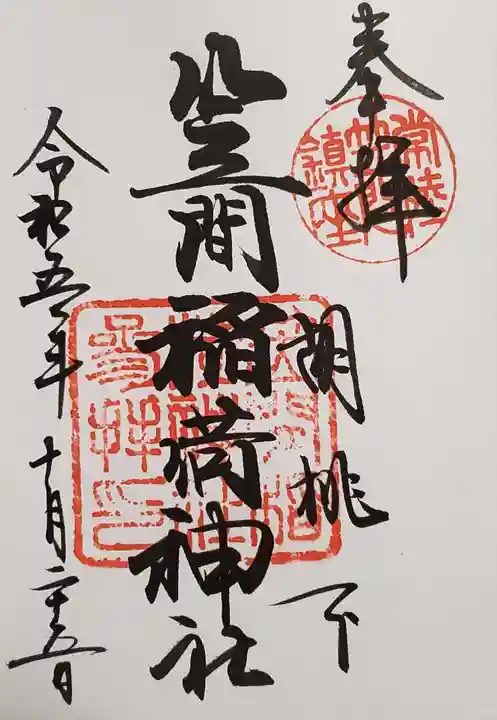 奉拝
胡桃下
笠間稲荷神社
令和五年十月二十五日
常陸
笠間
鎮座